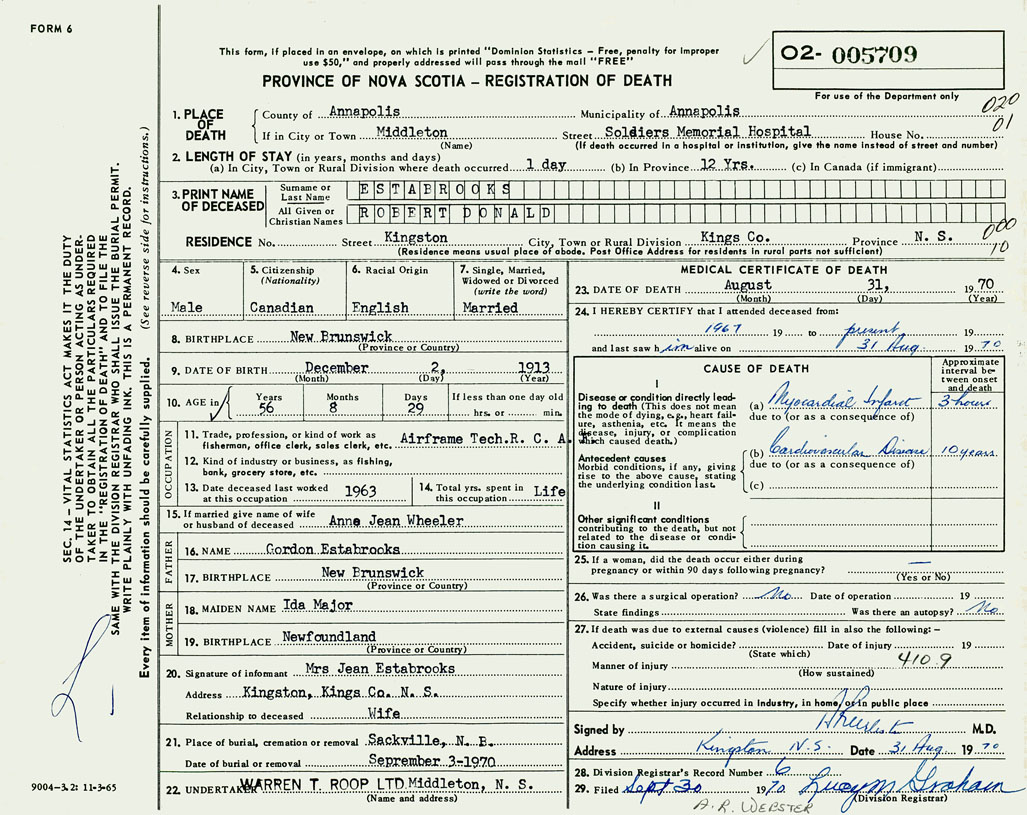 FORM 6
This form, if placed in an envelope, on which is printed "Dominion Statistics – Free, penalty for improper
use $50," and properly addressed will pass through the mail "FREE"
PROVINCE OF NOVA SCOTIA – REGISTRATION OF DEATH
02- 005709
For use of the Department only
020
01
1. PLACE OF DEATH
County of Annapolis Municipality of Annapolis
If in City or Town Middleton Street Soldiers Memorial Hospital House No.
(Name) (If death occurred in a hospital or institution, give the name instead of street and number)
2. LENGTH OF STAY (in years, months and days)
(a) In City, Town or Rural Division where death occurred 1 day (b) In Province 12 Yrs. (c) In Canada (if immigrant)
3. PRINT NAME OF DECEASED
Surname or Last Name ESTABROOKS
All Given or Christian Names ROBERT DONALD
000
10
RESIDENCE No. Street Kingston City, Town or Rural Division Kings Co. Province N. S.
(Residence means usual place of abode. Post Office Address for residents in rural parts not sufficient)
4. Sex
Male
5. Citizenship
(Nationality)
Canadian
6. Racial Origin
English
7. Single, Married,
Widowed or Divorced
(write the word)
Married
8. BIRTHPLACE New Brunswick
(Province or Country)
9. DATE OF BIRTH December 2, 1913
(Month) (Day) (Year)
10. AGE in
Years 56
Months 8
Days 29
If less than one day old
hrs. or min.
OCCUPATION
11. Trade, profession, or kind of work as
fisherman, office clerk, sales clerk, etc. Airframe Tech.R. C. A. F.
12. Kind of industry or business, as fishing,
bank, grocery store, etc.
13. Date deceased last worked
at this occupation 1963
14. Total yrs. spent in
this occupation Life
15. If married give name of wife
or husband of deceased Anne Jean Wheeler
FATHER
16. NAME Gordon Estabrooks
17. BIRTHPLACE New Brunswick
(Province or Country)
MOTHER
18. MAIDEN NAME Ida Major
19. BIRTHPLACE Newfoundland
(Province or Country)
20. Signature of informant Mrs Jean Estabrooks
Address Kingston, Kings Co. N. S.
Relationship to deceased Wife
21. Place of burial, cremation or removal Sackville, N. B.
Date of burial or removal September 3-1970
22. UNDERTAKER WARREN T. ROOP LTD. Middleton, N. S.
(Name and address)
MEDICAL CERTIFICATE OF DEATH
23. DATE OF DEATH August 31, 1970
(Month) (Day) (Year)
24. I HEREBY CERTIFY that I attended deceased from:
1967 19 to present 19
and last saw him alive on 31 Aug 1970
CAUSE OF DEATH
Approximate
interval be-
tween onset
and death
I
Disease or condition directly lead-
ing to death (This does not mean
the mode of dying, e.g., heart fail-
ure, asthenia, etc. It means the
disease, injury, or complication
which caused death.)
(a) Myocardial Infarct 3 hours
due to (or as a consequence of)
Antecedent causes
Morbid conditions, if any, giving
rise to the above cause, stating
the underlying condition last.
(b) Cardiovascular Disease 10 years
due to (or as a consequence of)
(c)
II
Other significant conditions
contributing to the death, but not
related to the disease or condi-
tion causing it.
25. If a woman, did the death occur either during
pregnancy or within 90 days following pregnancy? —
(Yes or No)
26. Was there a surgical operation? No Date of operation 19
State findings Was there an autopsy? No
27. If death was due to external causes (violence) fill in also the following: –
Accident, suicide or homicide? Date of injury 19
(State which)
410.9
Manner of injury
(How sustained)
Nature of injury
Specify whether injury occurred in industry, in home, or in public place
Signed by M.D.
Address Kingston N.S. Date 31 Aug 1970
28. Division Registrar's Record Number 6
29. Filed Sept 30 1970 Lucy M Graham
(Division Registrar)
A. R. WEBSTER
SEC. 14 – VITAL STATISTICS ACT MAKES IT THE DUTY
OF THE UNDERTAKER OR PERSON ACTING AS UNDER-
TAKER TO OBTAIN ALL THE PARTICULARS REQUIRED
IN THE "REGISTRATION OF DEATH" AND TO FILE THE
SAME WITH THE DIVISION REGISTRAR WHO SHALL ISSUE THE BURIAL PERMIT.
WRITE PLAINLY WITH UNFADING INK. THIS IS A PERMANENT RECORD.
Every item of information should be carefully supplied. (See reverse side for instructions.)
9004-3.2: 11-3-65